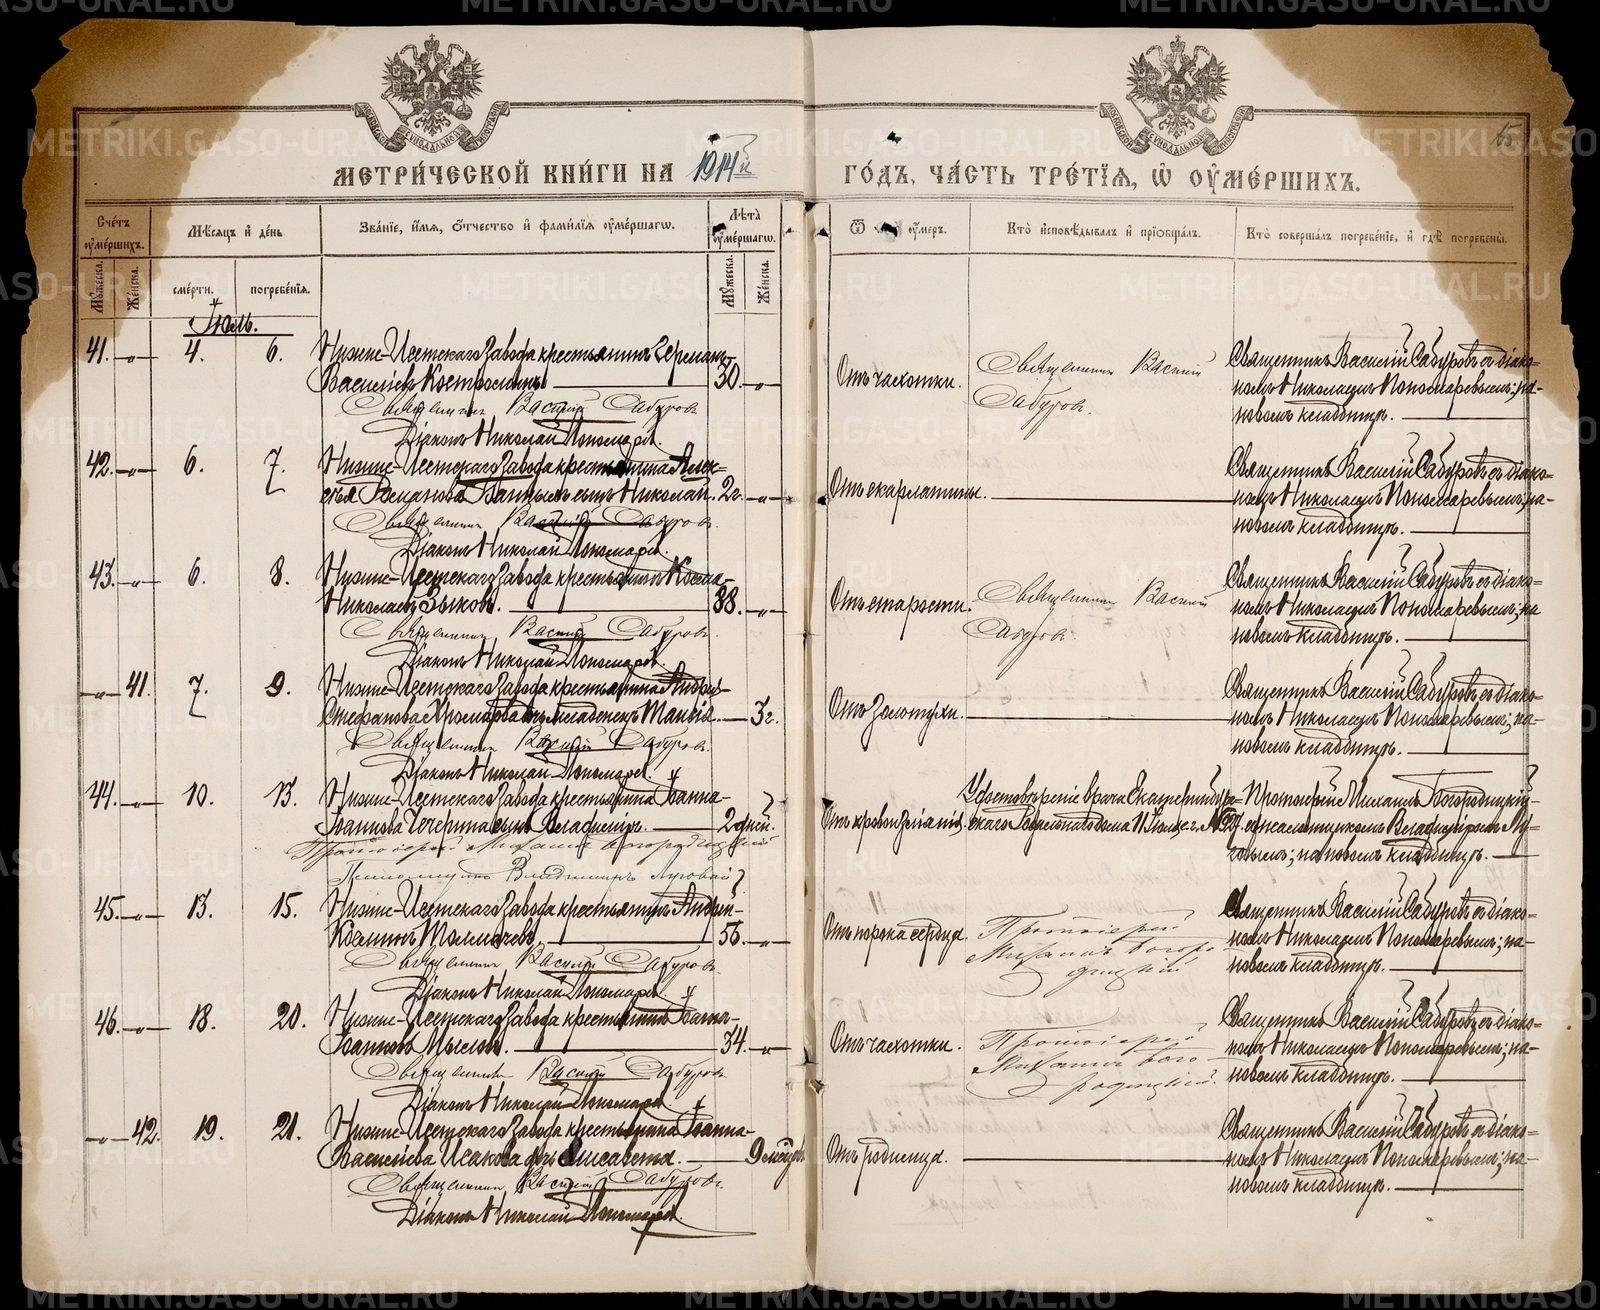 METRIKI.GASO-URAL.RU
МЕТРИ́ЧЕСКОЙ КНИ́ГИ НА 1914й ГО́ДЪ, ЧА́СТЬ ТРЕ́ТІЯ, Ѡ ОУМЕ́РШИХЪ.
Сче́тъ оуме́ршихъ.
Мѣ́сяцъ и де́нь
Зва́ніе, и́мя, о́тчество и фами́лія оуме́ршагѡ.
Лѣ́та оуме́ршагѡ.
оу́меръ.
Кто̀ исповѣ́дывалъ и пріѡбща́лъ.
Кто̀ соверша́лъ погребе́ніе, и гдѣ̀ погребены̀.
Мꙋ́жеска. Же́нска. сме́рти. погребе́нія. Мꙋ́жеска. Же́нска.
Іюль.
41. —„— 4. 6. Нижне-Исетскаго Завода крестьянинъ Германъ
Василіевъ Костромин 30. —„— Отъ чахотки.
Священникъ Василій Сабуровъ
Діаконъ Николай Пономаревъ.
Священникъ Василій
Сабуровъ.
Священникъ Василій Сабуровъ съ діако-
номъ Николаемъ Пономаревымъ; на
новомъ кладбищѣ.
42. —„— 6. 7. Нижне-Исетскаго Завода крестьянина Алек-
сѣя Романова сынъ Николай. 2г. —„— Отъ скарлатины.
Священникъ Василій Сабуровъ.
Діаконъ Николай Пономаревъ.
Священникъ Василій Сабуровъ съ діако-
номъ Николаемъ Пономаревымъ; на
новомъ кладбищѣ.
43. —„— 6. 8. Нижне-Исетскаго Завода крестьянинъ Козма
Николаевъ Зыковъ. 88. —„— Отъ старости.
Священникъ Василій Сабуровъ.
Діаконъ Николай Пономаревъ.
Священникъ Василій
Сабуровъ
Священникъ Василій Сабуровъ съ діако-
номъ Николаемъ Пономаревымъ; на
новомъ кладбищѣ.
—„— 41. 7. 9. Нижне-Исетскаго Завода крестьянина Андрея
Стефанова младенецъ 3г. Отъ золотухи.
Священникъ Василій Сабуровъ.
Діаконъ Николай Пономаревъ.
Священникъ Василій Сабуровъ съ діако-
номъ Николаемъ Пономаревымъ; на
новомъ кладбищѣ.
44. —„— 10. 13. Нижне-Исетскаго Завода крестьянина Іоанна
Іоаннова Чечерина сынъ Владиміръ. 2 дней. Отъ кровоизліянія.
Протоіерей Михаилъ Богородицкій
Псаломщикъ Владимиръ Луговой
Удостовѣреніе врача Екатеринбург-
скаго Родильнаго дома 11 Іюля с.г.
Протоіерей Михаилъ Богородицкій
съ псаломщикомъ Владиміромъ Лу-
говымъ; на новомъ кладбищѣ.
45. —„— 13. 15. Нижне-Исетскаго Завода крестьянинъ Андрей
Козминъ Толмачевъ. 56. —„— Отъ порока сердца.
Священникъ Василій Сабуровъ
Діаконъ Николай Пономаревъ.
Протоіерей
Михаилъ Богоро-
дицкій
Священникъ Василій Сабуровъ съ діако-
номъ Николаемъ Пономаревымъ; на
новомъ кладбищѣ.
46. —„— 18. 20. Нижне-Исетскаго Завода крестьянинъ Іоаннъ
Іоанновъ Мысловъ. 34. —„— Отъ чахотки.
Священникъ Василій Сабуровъ
Діаконъ Николай Пономаревъ.
Протоіерей
Михаилъ Бого-
родицкій.
Священникъ Василій Сабуровъ съ діако-
номъ Николаемъ Пономаревымъ; на
новомъ кладбищѣ.
—„— 42. 19. 21. Нижне-Исетскаго Завода крестьянина Іоанна
Василіева Исакова дочь Елисавета. 9 мѣсяц. Отъ родимца.
Священникъ Василій Сабуровъ.
Діаконъ Николай Пономаревъ.
Священникъ Василій Сабуровъ съ діако-
номъ Николаемъ Пономаревымъ; на
новомъ кладбищѣ.